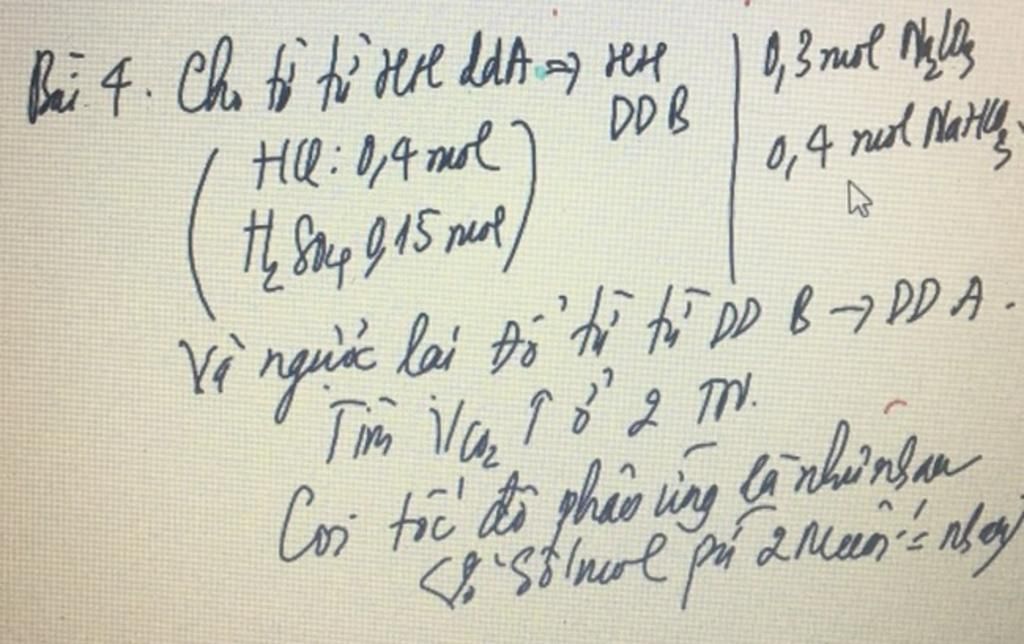 Bài 4. Cho từ từ HH ddA => HH DD B
0,3 mol Na2CO3
0,4 mol NaHCO3
HCl: 0,4 mol
H2SO4 0,15 mol
Và ngược lại Đổ từ từ DD B → DD A.
Tìm VCO2 ↑ ở 2 TN.
Coi tốc độ phản ứng là như nhau
số mol pứ 2 muối = nhau